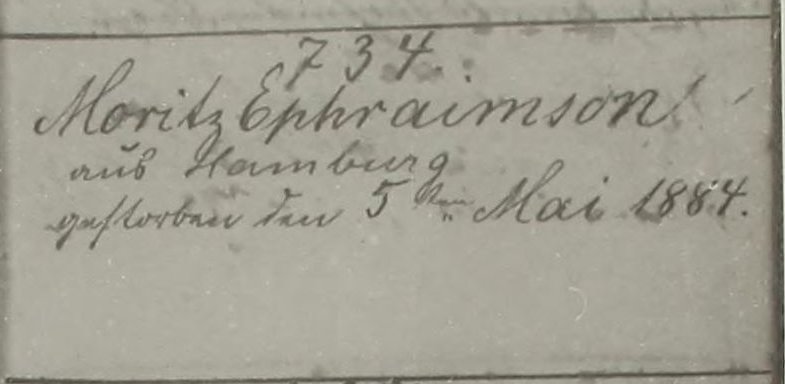 734.
Moritz Ephraimson
aus Hamburg
gestorben den 5ten Mai 1884.